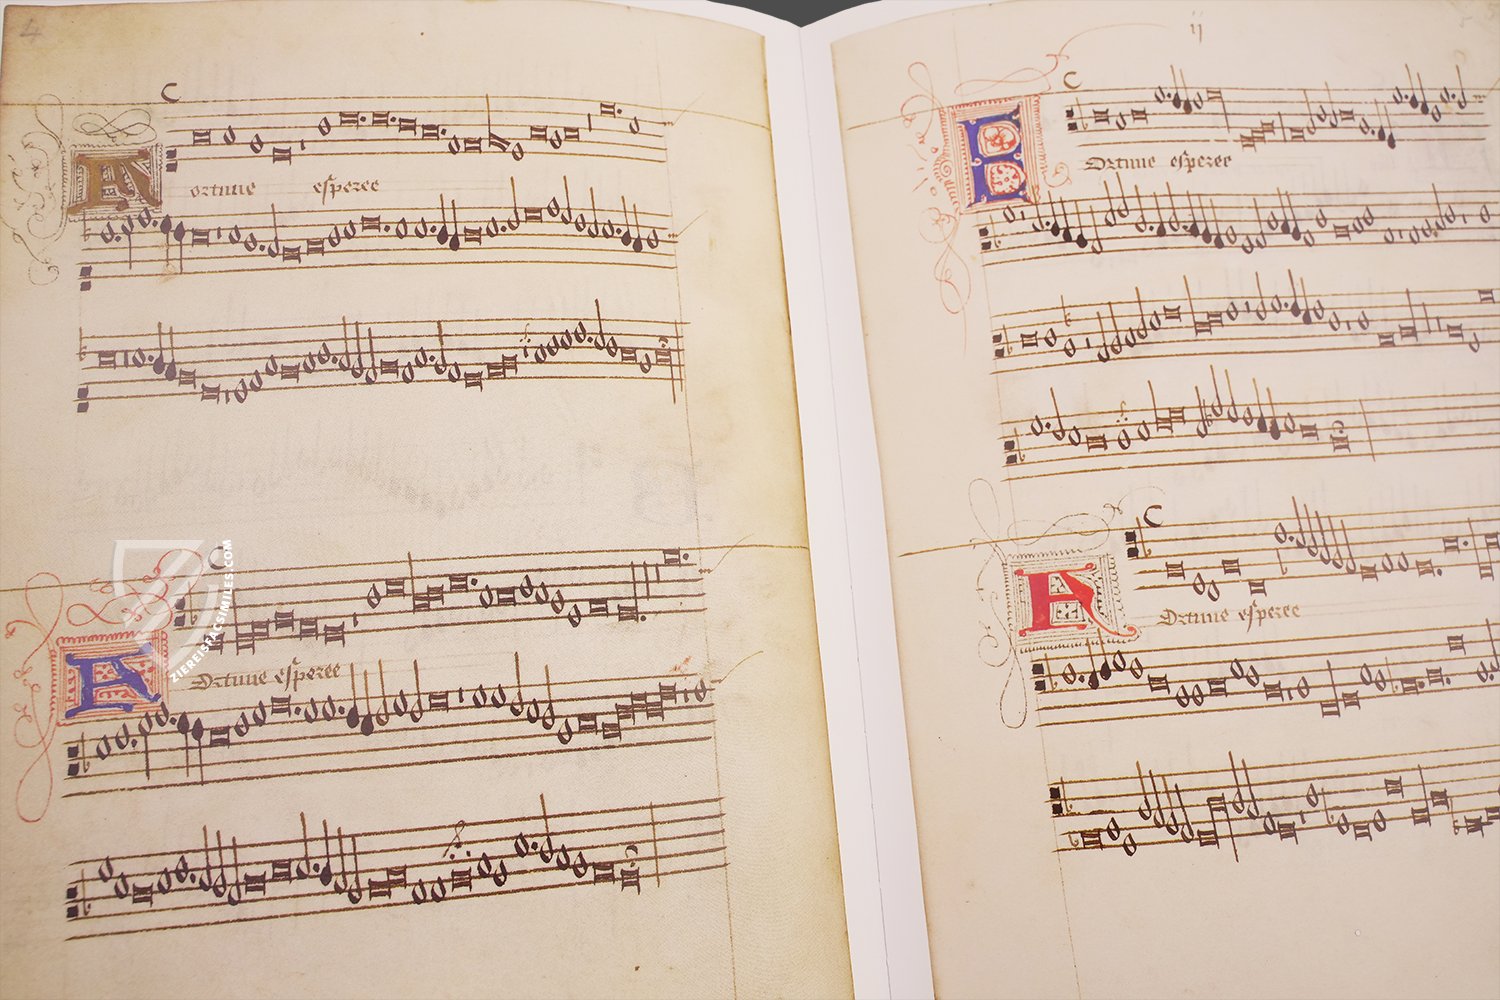 4
C
Fortune esperee
C
Fortune esperee
ZIEREISFACSIMILES.COM
ij
C
Fortune esperee
C
Fortune esperee